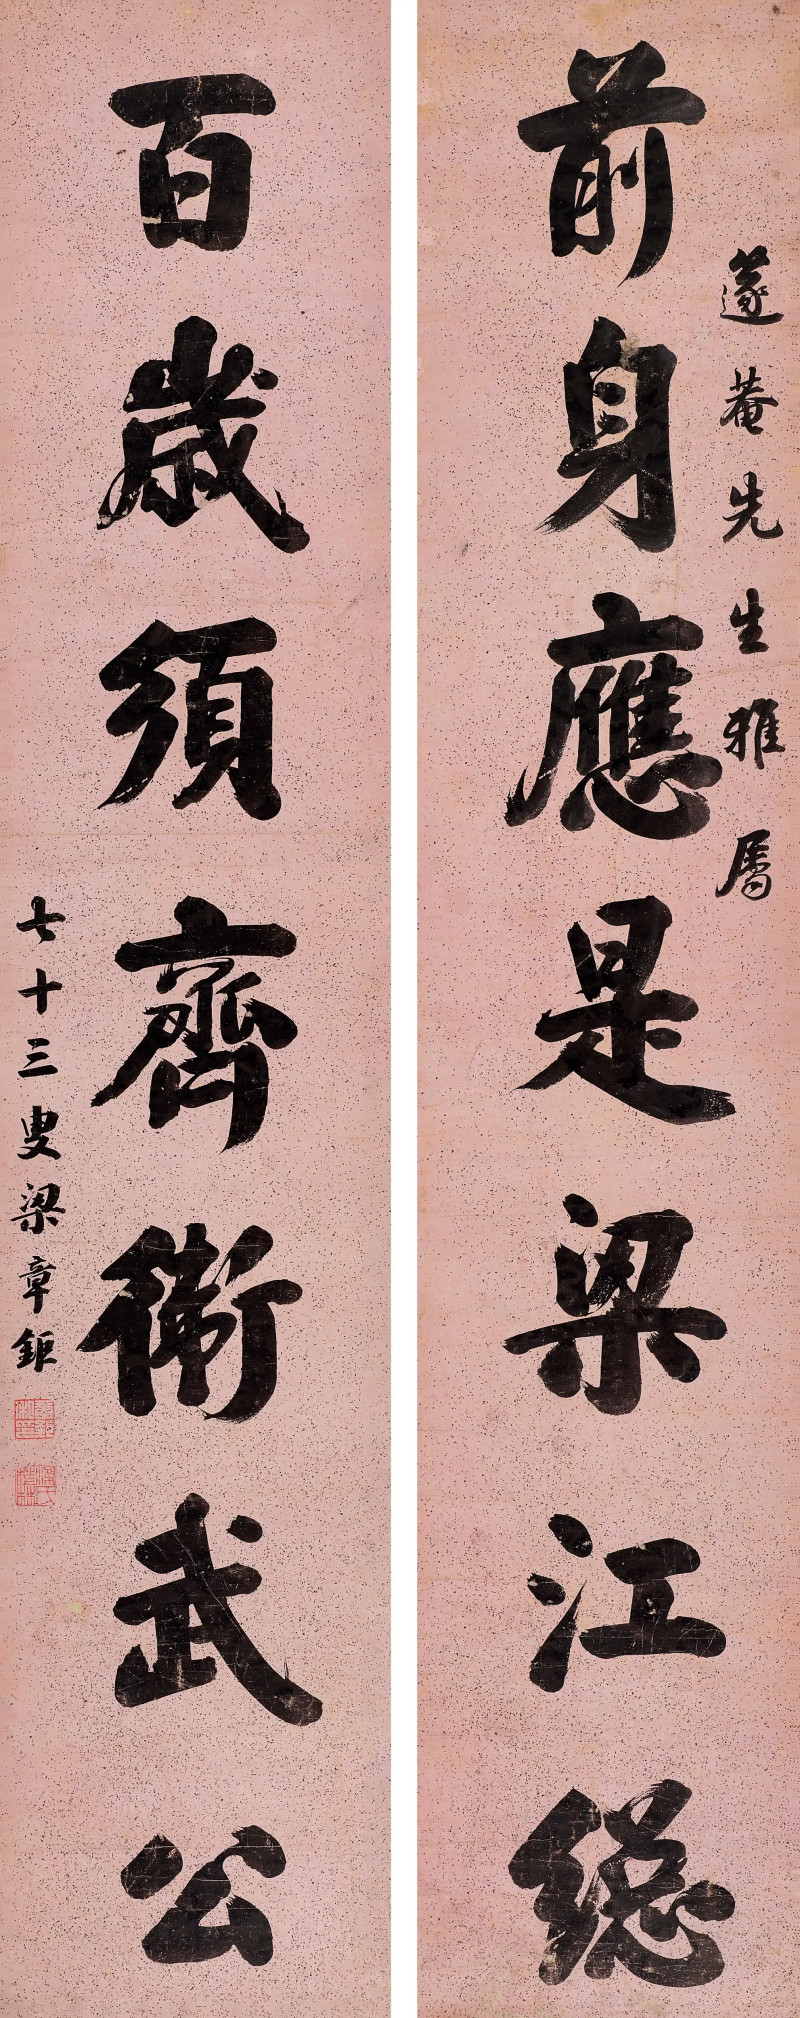 蓫菴先生雅属
前身應是梁江總
百歲須齊衛武公
七十三叟梁章鉅